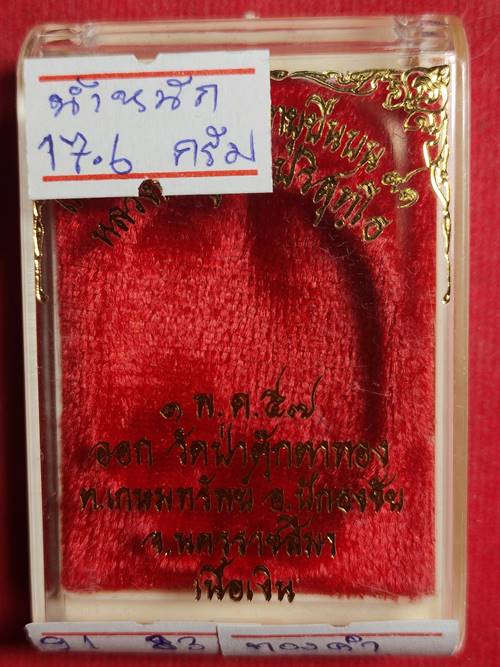 น้ำหนัก
17.6 กรัม
อายุยืนบน
ปริสุทฺโธ
๑ พ.ค. ๕๗
ออก วัดป่าตุ๊กตาทอง
ต.เกษมทรัพย์ อ.ปักธงชัย
จ.นครราชสีมา
เนื้อเงิน
91 83 ทองคำ